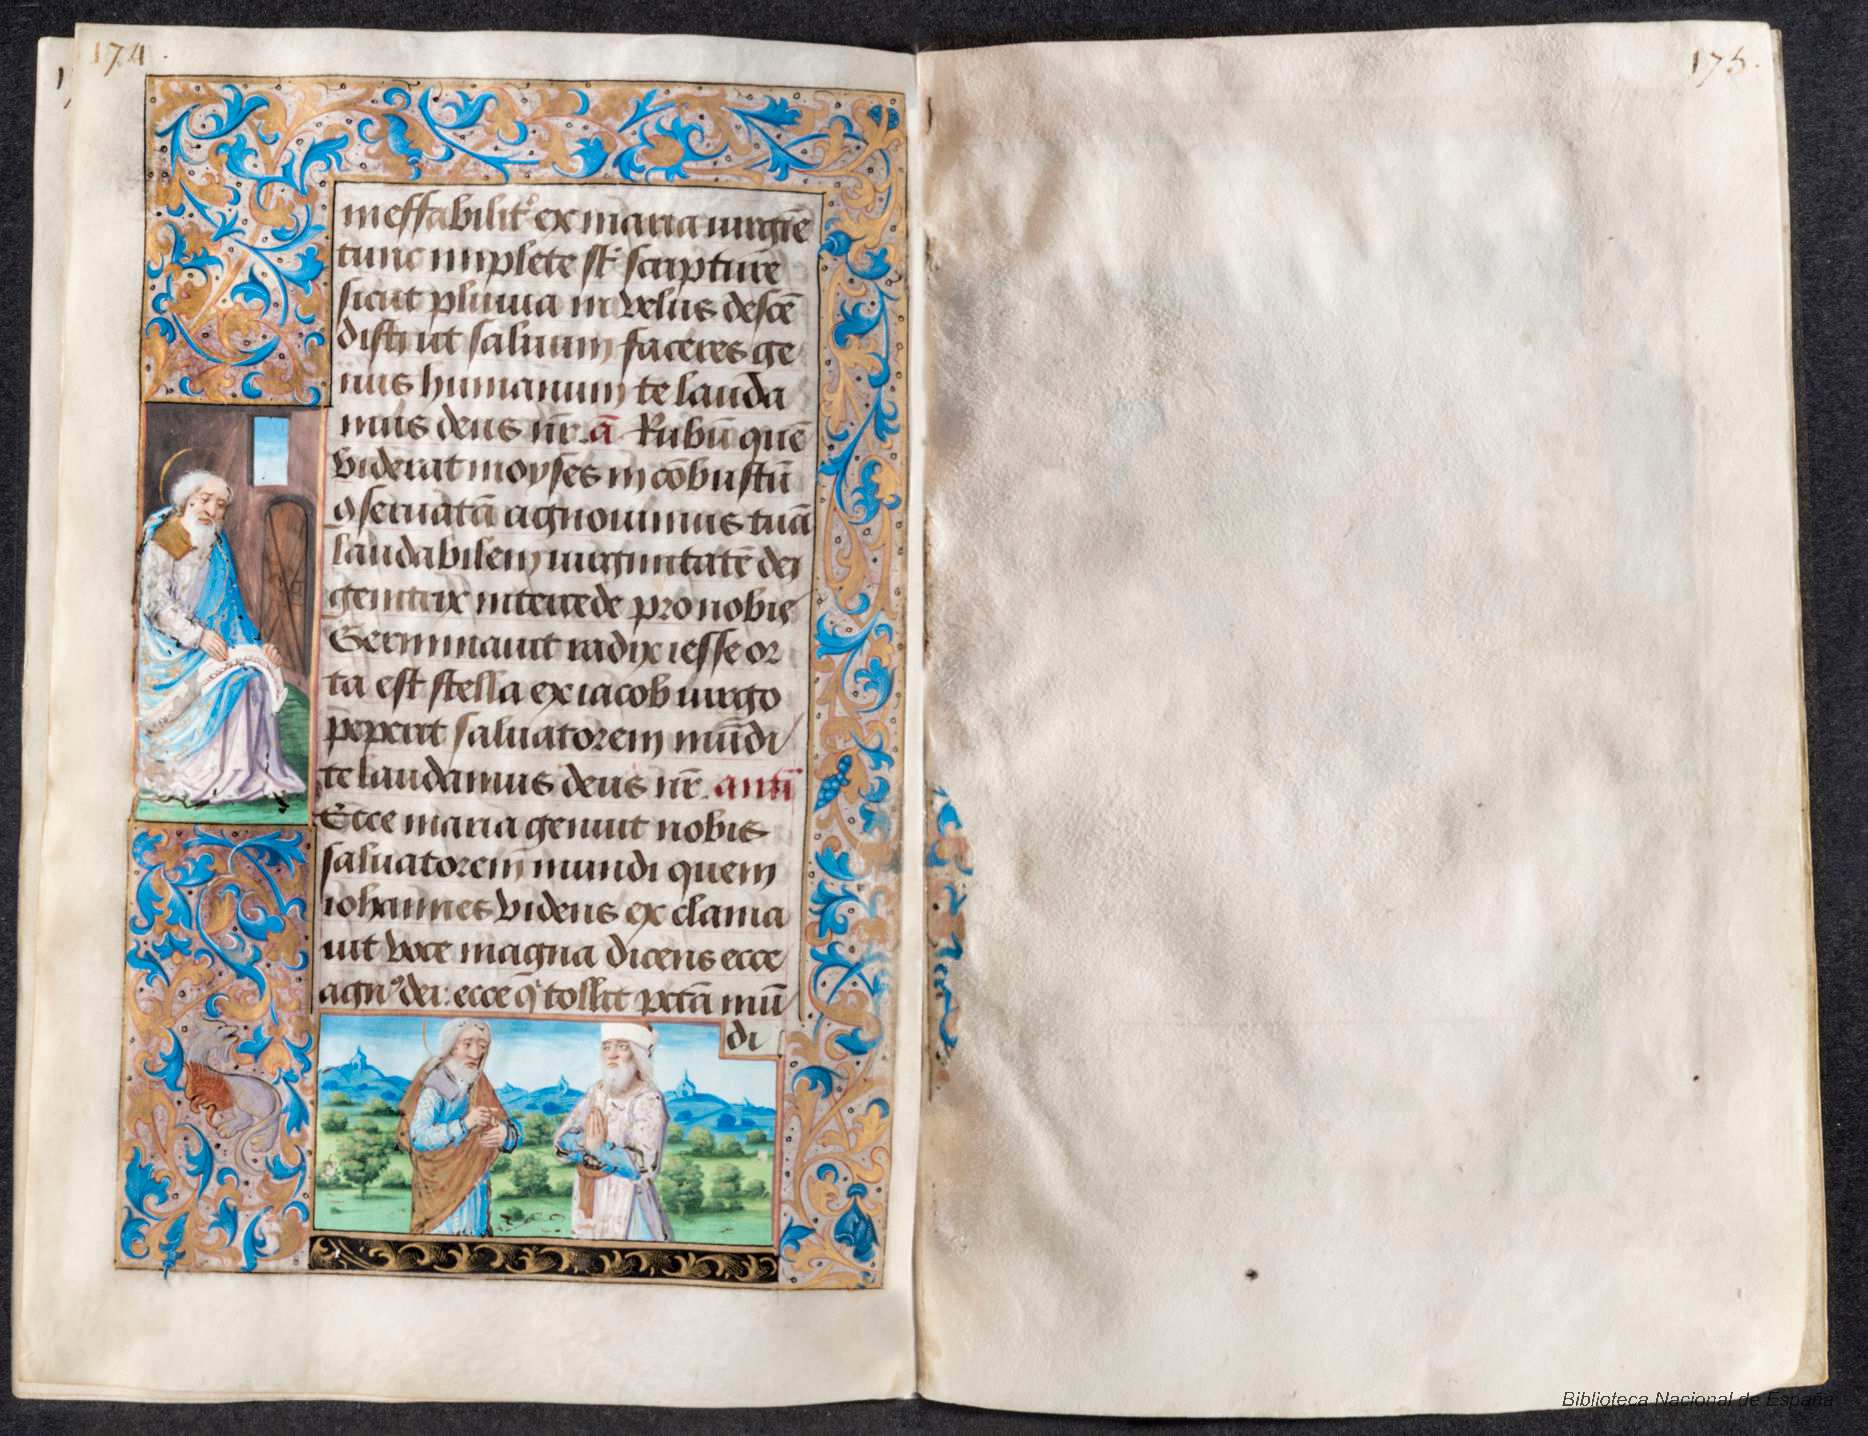 174.
ineffabilit᷑ ex maria uirgīe
tunc implete st̄ scripture
sicut pluuia in vellus descē
disti ut saluum faceres ge
nus humanum te lauda
mus deus nr̄. ā Rubū quē
viderat moyses incōbustū
ꝯseruatā agnouimus tuā
laudabilem uirginitatē dei
genitrix intercede pro nobis
Germinauit radix iesse or
ta est stella ex iacob uirgo
peperit saluatorem mūdi
te laudamus deus nr̄. antī
Ecce maria genuit nobis
saluatorem mundi quem
iohannes videns exclama
uit voce magna dicens ecce
agnꝰ dei: ecce q̄ tollit pctā mū
di
175.
Biblioteca Nacional de España